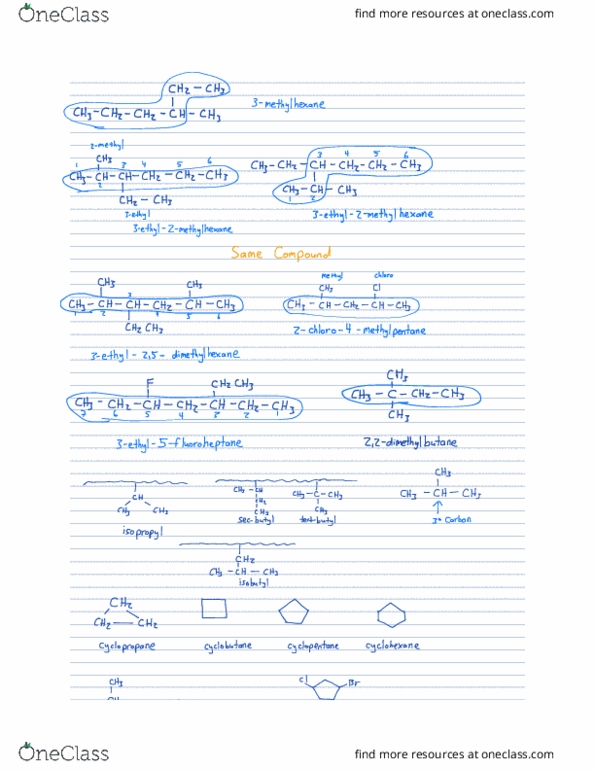 OneClass
find more resources at oneclass.com
CH2 - CH3
CH3-CH2-CH2-CH-CH3
3-methylhexane
2-methyl
CH3
1 3 4 5 6
CH3-CH-CH-CH2-CH2-CH3
2
CH2 - CH3
3-ethyl
3-ethyl-2-methylhexane
3 4 5 6
CH3-CH2-CH-CH2-CH2-CH3
CH3-CH-CH3
1 2
3-ethyl-2-methylhexane
Same Compound
CH3 CH3
3
CH3-CH-CH-CH2-CH-CH3
1 2 4 5 6
CH2CH3
3-ethyl-2,5-dimethylhexane
methyl chloro
CH3 Cl
CH3-CH-CH2-CH-CH3
2-chloro-4-methylpentane
F CH2CH3
CH3-CH2-CH-CH2-CH-CH2-CH3
7 6 5 4 3 2 1
3-ethyl-5-fluoroheptane
CH3
CH3-C-CH2-CH3
CH3
2,2-dimethylbutane
CH
CH3 CH3
isopropyl
CH3-CH
CH2
CH3
sec-butyl
CH3-C-CH3
CH3
tert-butyl
CH3
CH3-CH-CH3
3° Carbon
CH2
CH3-CH-CH3
isobutyl
CH2
CH2 CH2
cyclopropane cyclobutane cyclopentane cyclohexane
CH3
Cl Br
OneClass
find more resources at oneclass.com